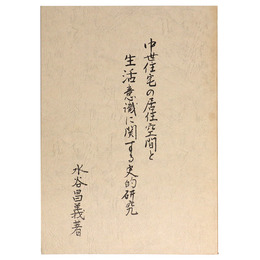 中世住宅の居住空間と
生活意識に関する史的研究
水谷昌義著